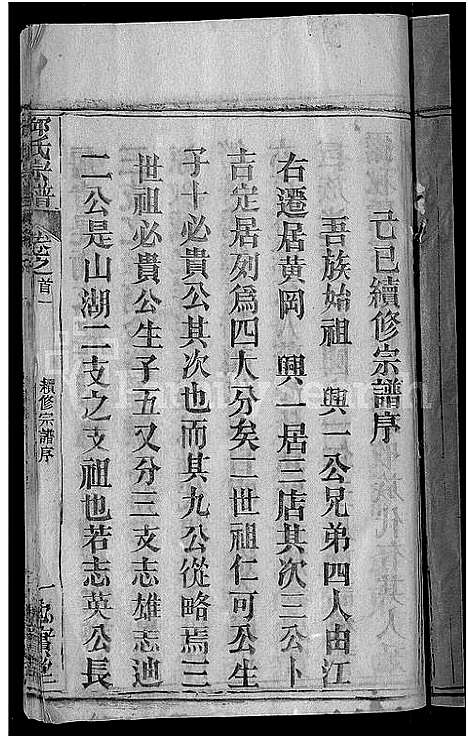 己巳續修宗譜序
吾族始祖　興一公兄弟四人由江
右遷居黃岡　興一居三店其次三公卜
吉定居列爲四大分矣二世祖仁可公生
子十必貴公其次也而其九公從略焉三
世祖必貴公生子五又分三支志雄志迪
二公是山湖二支之支祖也若志英公長
邱氏宗譜
卷之首
續修宗譜序
一